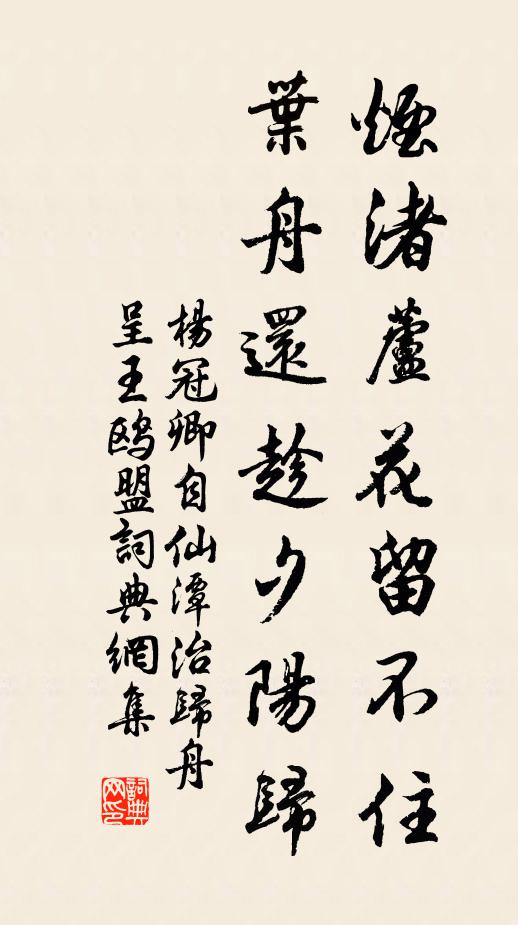 煙渚蘆花留不住
葉舟還趁夕陽歸
楊冠卿自仙潭治歸舟
呈王鸥盟詞典網集
詞典网印